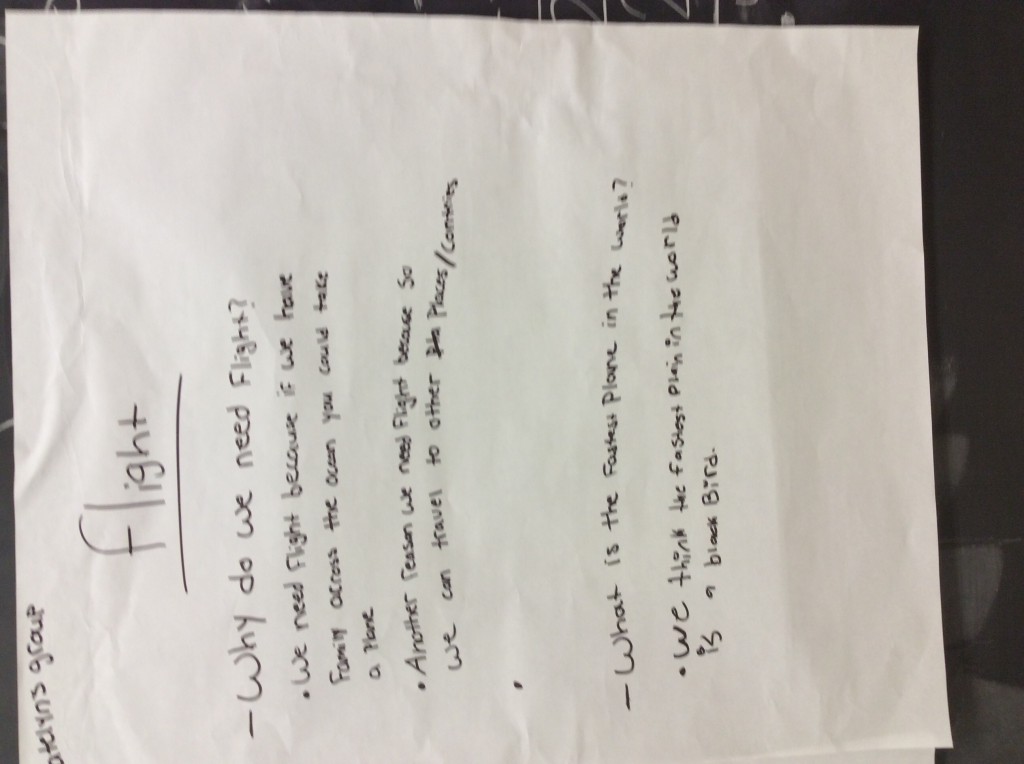 group
Flight
- Why do we need Flight?
• We need Flight because if we have
Family across the ocean you could take
a Plane
• Another reason we need Flight because so
we can travel to other Places/Contries
- What is the Fastest Plane in the world?
• We think the fastest Plain in the world
is a black Bird.